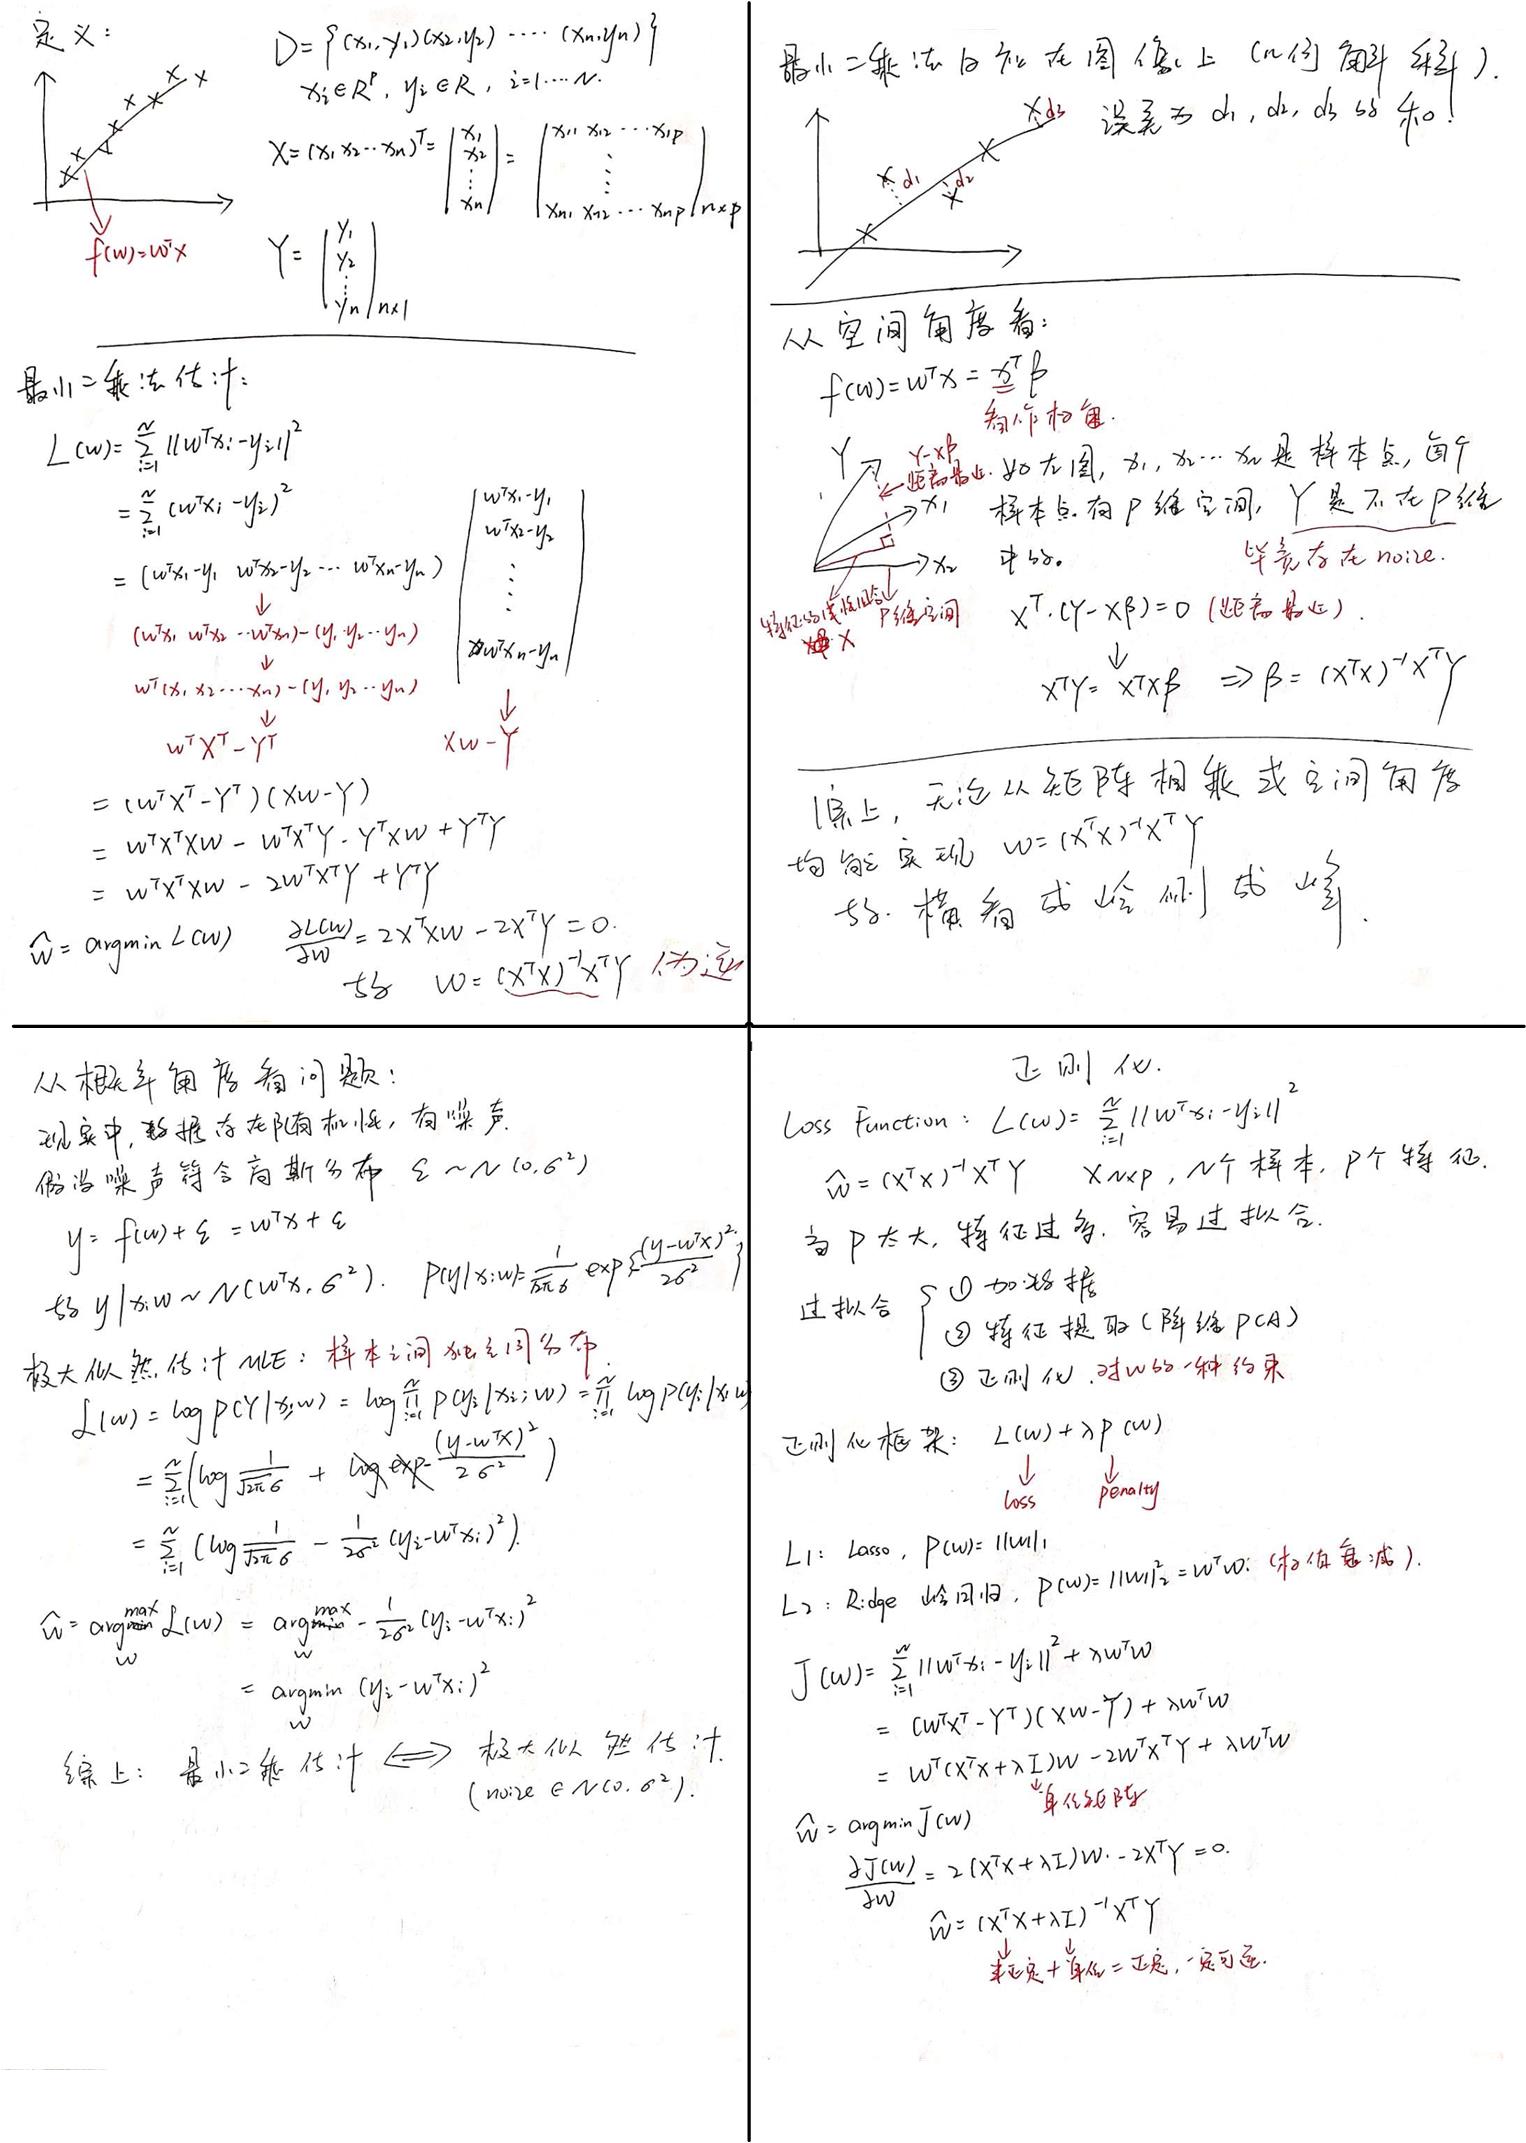 定义：
D={(x1,y1)(x2,y2)····(xn,yn)}
xi∈R^P, yi∈R, i=1····N.
X=(x1 x2···xn)^T=(x1 x2 ⋮ xn)=(x11 x12 ···x1p ⋮ xn1 xn2 ···xnp)n×p
f(w)=w^Tx
Y=(y1 y2 ⋮ yn)n×1
最小二乘法估计：
L(w)=∑_{i=1}^{N}||w^Txi-yi||^2
=∑_{i=1}^{N}(w^Txi-yi)^2
=(w^Tx1-y1 w^Tx2-y2 ··· w^Txn-yn)(w^Tx1-y1 w^Tx2-y2 ⋮ w^Txn-yn)
↓
(w^Tx1 w^Tx2 ···w^Txn)-(y1 y2···yn)
↓
w^T(x1 x2····xn)-(y1 y2···yn)
↓ ↓
w^TX^T-Y^T Xw-Y
=(w^TX^T-Y^T)(Xw-Y)
=w^TX^TXw-w^TX^TY-Y^TXw+Y^TY
=w^TX^TXw-2w^TX^TY+Y^TY
ŵ=argmin L(w) ∂L(w)/∂w=2X^TXw-2X^TY=0.
故 w=(X^TX)^{-1}X^TY 伪逆
最小二乘法在图像上
误差为d1,d2,d3的和!
d1 d2 d3
从空间角度看：
f(w)=w^Tx=x^Tβ
看作权重.
Y Y-Xβ
距离最近.如左图, x1,x2···xn是样本点,每个
x1 样本点有P维空间, Y是不在P维
x2 中的. 毕竟存在noise.
特征的线性组合 P维空间
X^T·(Y-Xβ)=0(距离最近).
↓
X^TY=X^TXβ ⇒β=(X^TX)^{-1}X^TY
综上,无论从矩阵相乘或空间角度
均能实现 w=(X^TX)^{-1}X^TY
故.横看成岭侧成峰.
从概率角度看问题：
现实中,数据存在随机性,有噪声.
假设噪声符合高斯分布 ε~N(0,σ^2)
y=f(w)+ε=w^Tx+ε
故 y|x;w~N(w^Tx,σ^2). P(y|x;w)=1/(√2π σ) exp{(y-w^Tx)^2/2σ^2}
极大似然估计MLE：样本之间独立同分布.
L(w)=log P(Y|x;w)=log∏_{i=1}^{N}P(yi|xi;w)=∏_{i=1}^{N}log P(yi|xi w
=∑_{i=1}^{N}(log 1/(√2π σ)+log exp-(y-w^Tx)^2/2σ^2)
=∑_{i=1}^{N}(log 1/(√2π σ)-1/2σ^2(yi-w^Txi)^2).
ŵ=argmax_w L(w)=argmax_w -1/2σ^2(yi-w^Txi)^2
=argmin_w(yi-w^Txi)^2
综上：最小二乘估计⇔极大似然估计.
(noise∈N(0,σ^2).
正则化.
Loss Function：L(w)=∑_{i=1}^{N}||w^Txi-yi||^2
ŵ=(X^TX)^{-1}X^TY X N×P, N个样本. P个特征.
当P太大,特征过多.容易过拟合.
过拟合{①加数据
②特征提取(降维PCA)
③正则化.对w的一种约束
正则化框架：L(w)+λP(w)
↓ ↓
loss penalty
L1：Lasso, P(w)=||w||1
L2：Ridge 岭回归, P(w)=||w||^2_2=w^Tw.(权值衰减).
J(w)=∑_{i=1}^{N}||w^Txi-yi||^2+λw^Tw
=(w^TX^T-Y^T)(Xw-Y)+λw^Tw
=w^T(X^TX+λI)w-2w^TX^TY+λw^Tw
↓单位矩阵
ŵ=argmin J(w)
∂J(w)/∂w=2(X^TX+λI)w.-2X^TY=0.
ŵ=(X^TX+λI)^{-1}X^TY
↓ ↓
半正定+单位=正定,一定可逆.